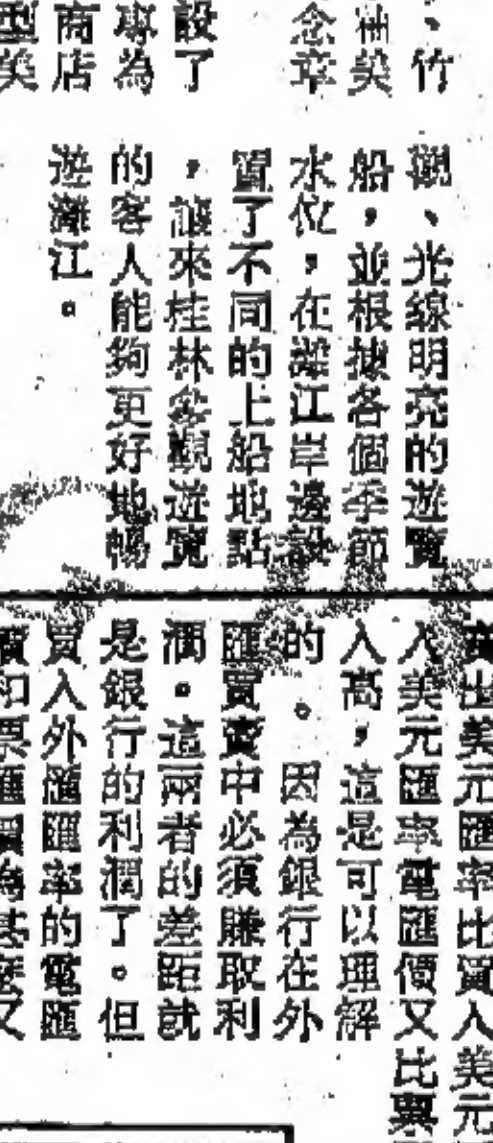 、竹
美
念章
設了
專為
商店
型美
觀、光線明亮的遊覽
船，並根據各個季節
水位，在灕江岸邊設
置了不同的上船地點
，讓來桂林參觀遊覽
的客人能夠更好地暢
遊灕江。
賣出美元匯率比買入美元
入美元匯率電匯價又比票
入高，這是可以理解
的。因為銀行在外
匯買賣中必須賺取利
潤。這兩者的差距就
是銀行的利潤了。但
買入外匯匯率的電匯
價和票匯價為甚麼又